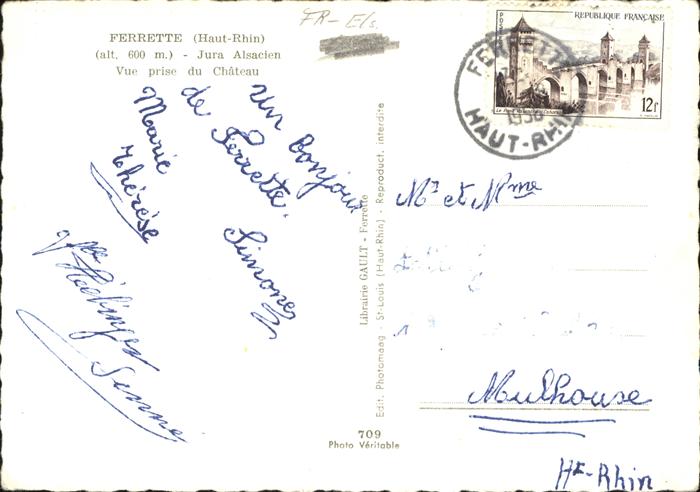 FR-E/s.
FERRETTE (Haut-Rhin)
(alt. 600 m.) - Jura Alsacien
Vue prise du Château
Un Bonjour
de Ferrette.
Simone
Marie
Thérèse
Librairie GAULT - Ferrette
Edit. Photomaag - St-Louis (Haut-Rhin) - Reproduct. interdite
709
Photo Véritable
POSTES
REPUBLIQUE FRANÇAISE
12F
FERRETTE
HAUT-RHIN
Mr et Mme
Mulhouse
Ht-Rhin